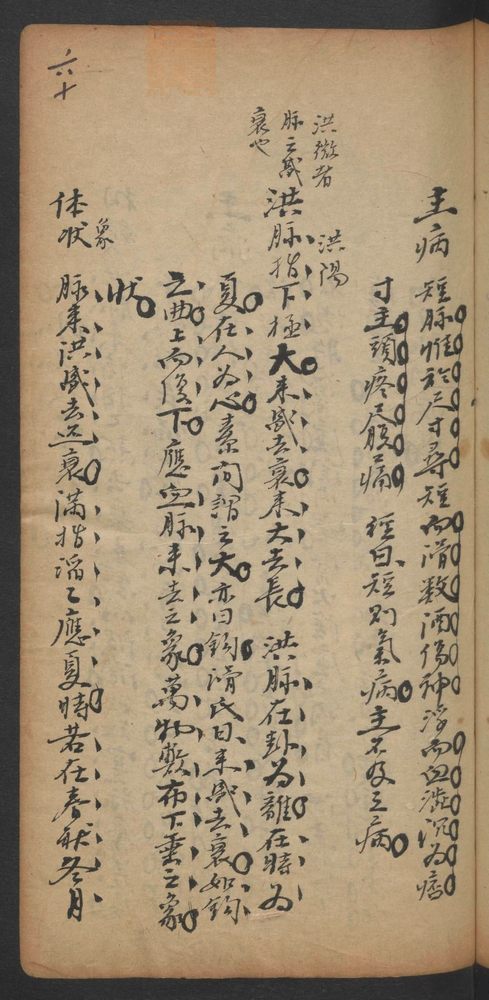 主病 短脉惟於尺寸尋短而滑数酒傷神浮而血澁沉為痞
寸主頭疼尺腹痛 経曰短則氣病主不及之病
洪微者
脉之盛
衰也
洪陽
洪脉指下極大来盛去衰来大去長 洪脉在卦為離在時為
夏在人為心素问謂之大亦曰鈎滑氏曰来盛去衰如鈎
之曲上而復下應血脉来去之象萬物敷布下垂之象
状
体状象 脉来洪盛去还衰满指滔々應夏時若在春秋冬月
六十